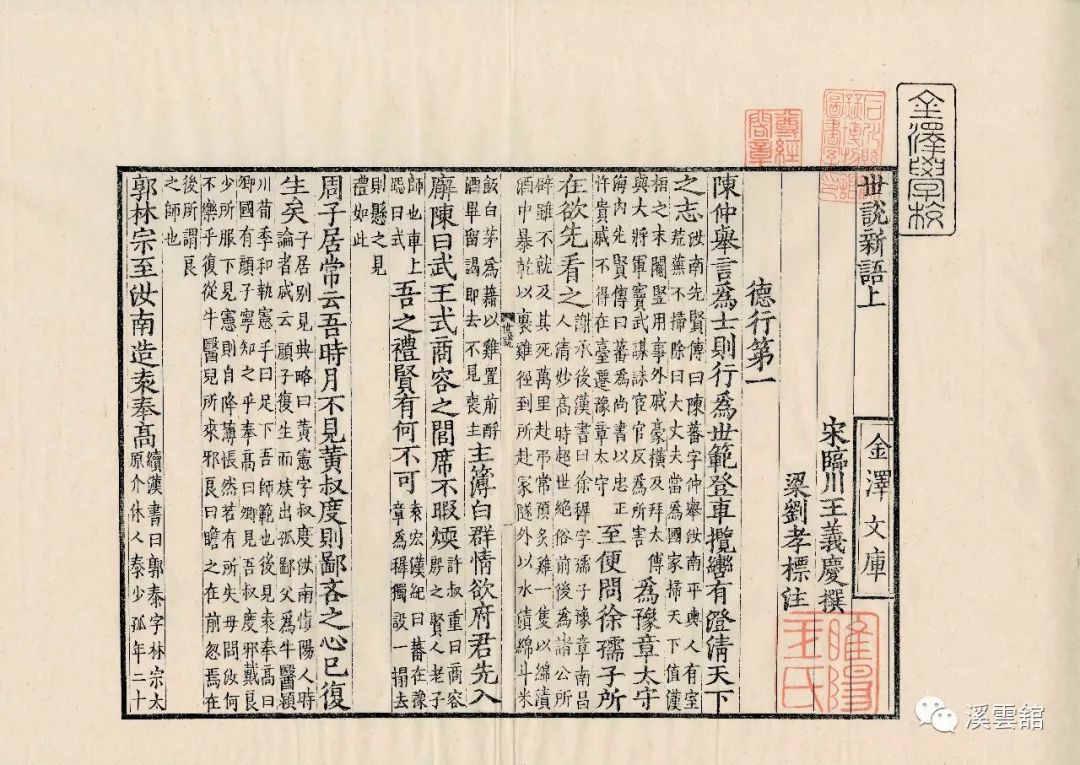 金澤學校
尊經閣章
世說新語上
金澤文庫
宋臨川王義慶撰
梁劉孝標注
睢陽王氏
德行第一
陳仲舉言為士則行為世範登車攬轡有澄清天下
之志汝南先賢傳曰陳蕃字仲舉汝南平輿人有室荒蕪不掃除曰大丈夫當為國家掃天下值漢
桓之末閹豎用事外戚豪橫及拜太傅與大將軍竇武謀誅宦官反為所害為豫章太守
海內先賢傳曰蕃為尚書以忠正忤貴戚不得在臺遷豫章太守至便問徐孺子所
在欲先看之謝承後漢書曰徐穉字孺子豫章南昌人清妙高時超世絕俗前後為諸公所
辟雖不就及其死萬里赴弔常預炙雞一隻以綿漬酒中暴乾以裹雞徑到所赴冢隧外以水漬綿斗米
世說
飯白茅為藉以雞置前酹酒畢留謁即去不見喪主主簿白群情欲府君先入
廨陳曰武王式商容之閭席不暇煗許叔重曰商容殷之賢人老子
師也車上跽曰式吾之禮賢有何不可袁宏漢紀曰蕃在豫章為穉獨設一榻去
則懸之見禮如此
周子居常云吾時月不見黃叔度則鄙吝之心已復
生矣子居別見典略曰黃憲字叔度汝南慎陽人時論者咸云顏子復生而族出孤鄙父為牛醫潁
川荀季和執憲手曰足下吾師範也後見袁奉高曰卿國有顏子寧知之乎奉高曰卿見吾叔度邪戴良
少所服下見憲則自降薄悵然若有所失母問汝何不樂乎復從牛醫兒所來邪良曰瞻之在前忽焉在
後所謂良之師也
郭林宗至汝南造袁奉高續漢書曰郭泰字林宗太原介休人泰少孤年二十
溪雲館